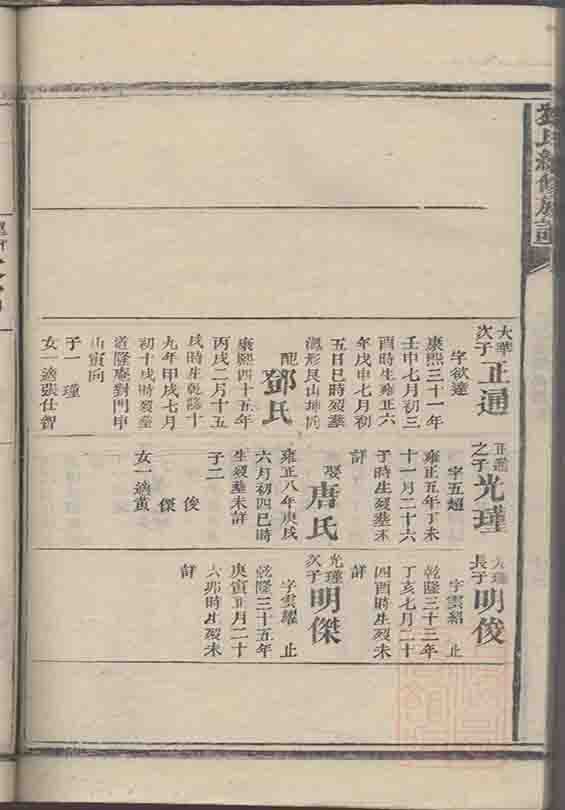 氏續修族譜
大華
次子
正通
字欲達
康熙三十一年
壬申七月初三
酉時生雍正六
年戊申七月初
五日巳時歿葬
形艮山坤向
配
鄧氏
康熙四十五年
丙戌二月十五
戌時生乾隆十
九年甲戌七月
初十戌時歿葬
道隆菴對門甲
山寅向
子一 瑾
女一適張仕智
正通
之子
光瑾
字五超
雍正五年丁未
十一月二十六
子時生歿葬未
詳
娶
唐氏
雍正八年庚戌
六月初四巳時
生歿葬未詳
子二
俊
傑
女一適黃
光瑾
長子
明俊
字雲紹 止
乾隆三十三年
丁亥七月二十
四酉時生歿未
詳
光瑾
次子
明傑
字雲耀 止
乾隆三十五年
庚寅正月二十
六卯時生歿未
詳